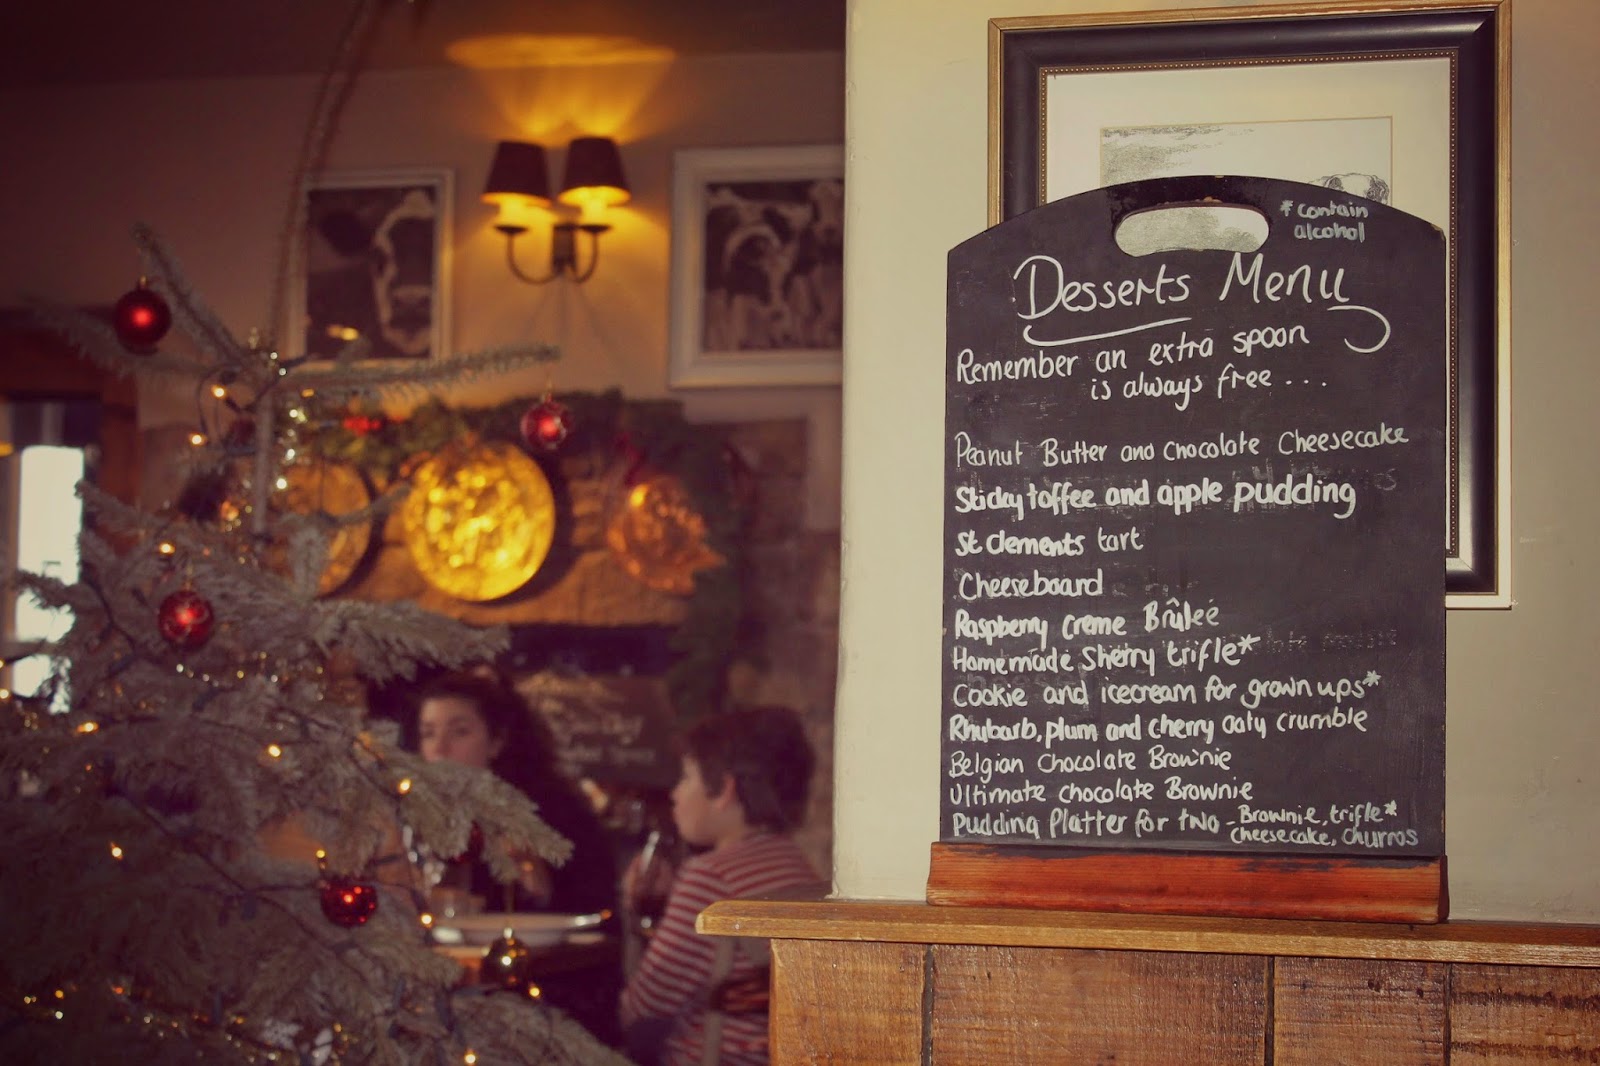 * contain
alcohol
Desserts Menu
Remember an extra spoon
is always free ...
Peanut Butter and Chocolate Cheesecake
Sticky toffee and apple pudding
St Clements tart
Cheeseboard
Raspberry Creme Brûleé
Homemade Sherry trifle*
Cookie and icecream for grown ups*
Rhubarb, plum and cherry oaty crumble
Belgian Chocolate Brownie
Ultimate chocolate Brownie
Pudding Platter for two - Brownie, trifle*
cheesecake, churros